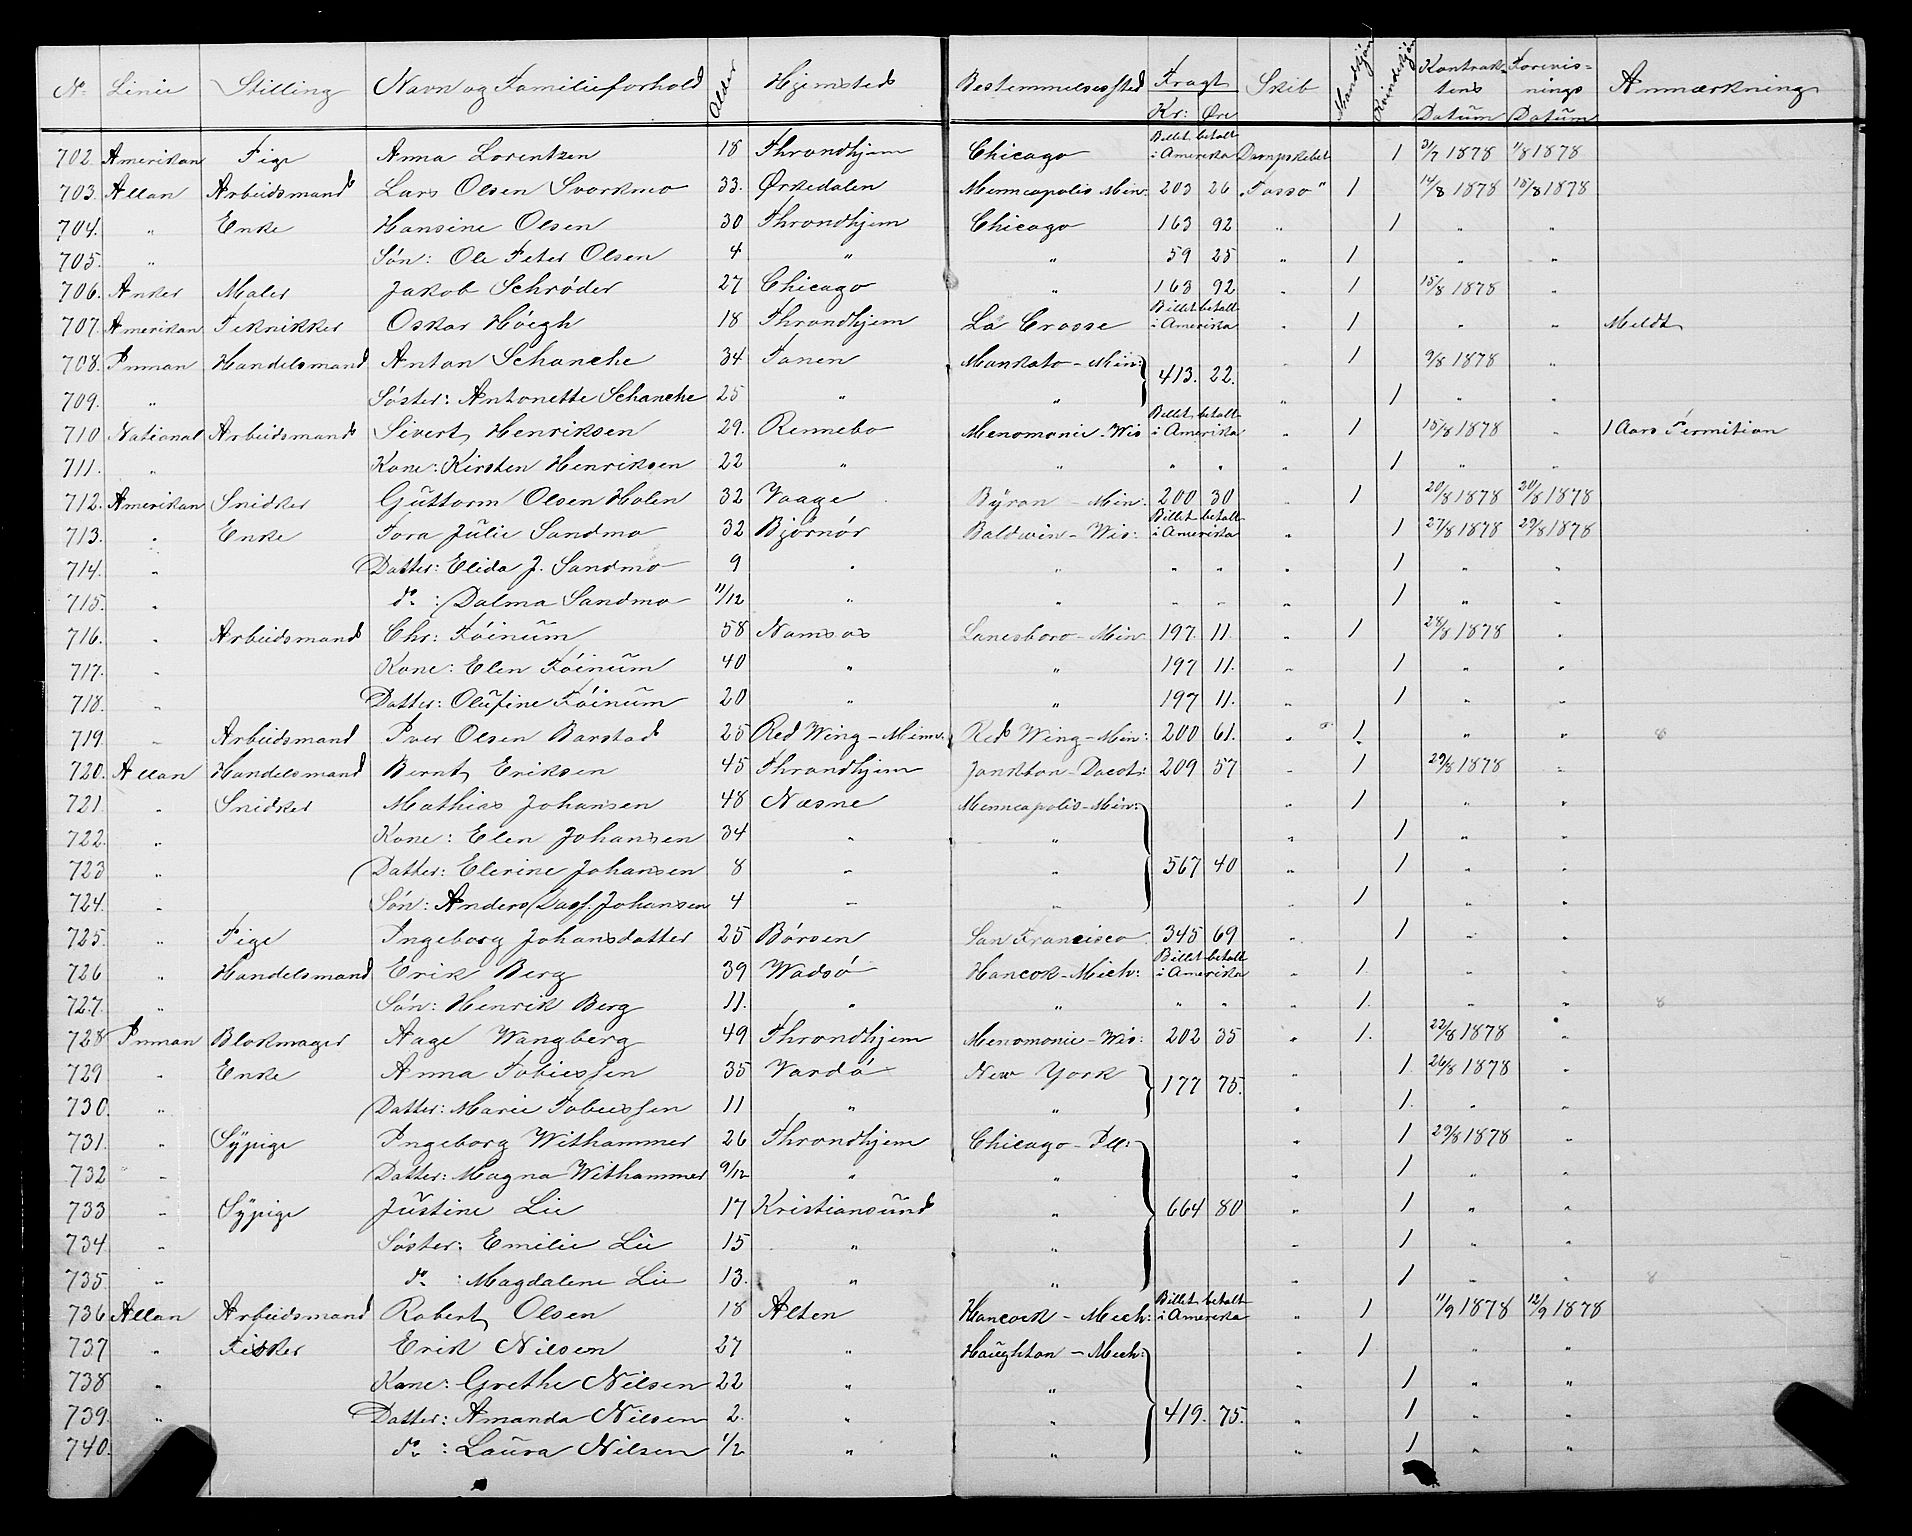 No. Linie Stilling Navn og Familieforhold Alder Hjemsted Bestemmelsessted Fragt Kr: Øre Skib Mandkjøn Kvindekjøn Kontraktens Datum Forevisnings Datum Anmærkning
702. Amerikan Pige Anna Lorentzen 18 Throndhjem Chicago Billet betalt i Amerika Dampskibet 1 31/7 1878 1/8 1878
703. Allan Arbeidsmand Lars Olsen Svorkmo 33. Ørkedalen Minneapolis Min: 203 26 „Tasso" 1 14/8 1878 15/8 1878
704. " Enke Hansine Olsen 30 Throndhjem Chicago 163 92 " 1 " "
705. " Søn: Ole Peter Olsen 4 " " 59 25 " 1 " "
706. Anker Maler Jakob Schrøder 27 Chicago " 163 92 " 1 15/8 1878 "
707. Amerikan Teknikker Oskar Høegh 18 Throndhjem La Crosse Billet betalt i Amerika " 1 " " Meldt
708. Inman Handelsmand Anton Schanche 34 Tanen Mankato - Min: 413. 22. " 1 9/8 1878 "
709. " Søster: Antonette Schanche 25 " " " 1 " "
710. National Arbeidsmand Sivert Henriksen 29. Rennebo Menomonie - Wis Billet betalt i Amerika " 1 15/8 1878 " 1 Aars Permition
711. " Kone: Kirsten Henriksen 22 " " " " " 1 " "
712. Amerikan Snidker Guttorm Olsen Holen 32 Vaage Byron - Min: 200 30 " 1 20/8 1878 20/8 1878
713. " Enke Tora Julie Sandmo 32 Bjørnør Baldwin - Wis: Billet betalt i Amerika " 1 27/8 1878 29/8 1878
714. " Datter: Elida J. Sandmo 9 " " " " " 1 " "
715. " do : Dalma Sandmo 11/12 " " " " " 1 " "
716. " Arbeidsmand Chr: Føinum 58 Namsos Lanesboro - Min 197. 11. " 1 28/8 1878 "
717. " Kone: Elen Føinum 40 " " 197 11. " 1 " "
718. " Datter: Olufine Føinum 20 " " 197 11. " 1 " "
719. " Arbeidsmand Iver Olsen Barstad 25 Red Wing - Minn. Red Wing - Min: 200 61. " 1 " "
720. Allan Handelsmand Bernt Eriksen 45 Throndhjem Jankton - Dacot: 209 57 " 1 29/8 1878 "
721 " Snidker Mathias Johansen 48 Næsne Minneapolis - Min: " 1 " "
722. " Kone: Elen Johansen 34 " " " 1 " "
723 " Datter: Elerine Johansen 8 " " 567 40 " 1 " "
724. " Søn: Anders Johansen 4 " " " 1 " "
725. " Pige Ingeborg Johansdatter 25 Børsen San Francisco 345 69 " 1 " "
726 " Handelsmand Erik Berg 39 Wadsø Hancok - Mich: Billet betalt i Amerika " 1. " "
727. " Søn: Henrik Berg 11. " " " " " 1. " "
728 Inman Blokmager Aage Wangberg 49 Throndhjem Menomonie - Wis: 202 35 " 1. 22/8 1878 "
729 " Enke Anna Tobiessen 35 Vardø New York 177 75. " 1 26/8 1878 "
730. " Datter: Marie Tobiessen 11 " " " 1. " "
731. " Sypige Ingeborg Withammer 26 Throndhjem Chicago - Ill: " 1 29/8 1878 "
732 " Datter: Magna Withammer 9/12 " " " 1 " "
733 " Sypige Justine Lie 17 Kristiansund " 664 80 " 1 " "
734 " Søster: Emilie Lie 15 " " " 1 " "
735. " do : Magdalene Lie 13. " " " 1 " "
736 Allan Arbeidsmand Robert Olsen 18 Alten Hancock - Mich: Billet betalt i Amerika " 1 11/9 1878 12/9 1878
737 " Fisker Erik Nilsen 27 " Haughton - Mich: " 1 " "
738 " Kone: Grethe Nilsen 22 " " " 1 " "
739. " Datter: Amanda Nilsen 2. " " 419. 75. " 1 " "
740. do : Laura Nilsen 1/2 " " " 1 " "